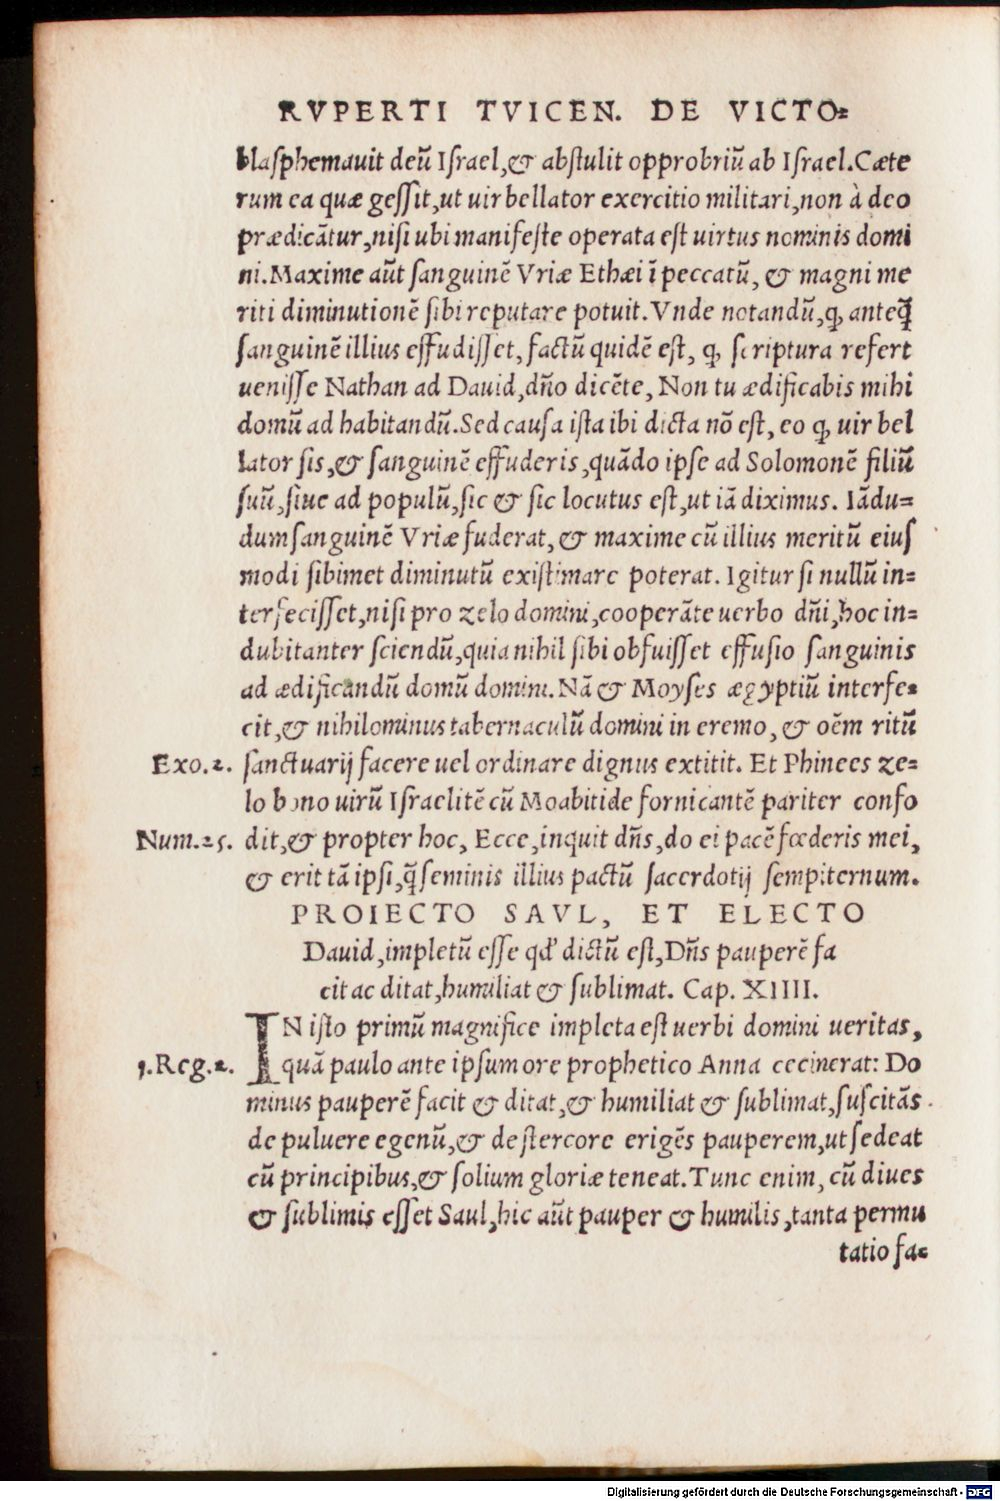 RVPERTI TVICEN. DE VICTO⸗
blasphemauit deũ Israel, & abstulit opprobriũ ab Israel. Cæte
rum ea quæ gessit, ut uir bellator exercitio militari, non à deo
prædicãtur, nisi ubi manifeste operata est uirtus nominis domi
ni. Maxime aũt sanguinẽ Vriæ Ethæi ĩ peccatũ, & magni me
riti diminutionẽ sibi reputare potuit. Vnde notandũ, ꝙ anteq̃
sanguinẽ illius effudisset, factũ quidẽ est, ꝙ scriptura refert
uenisse Nathan ad Dauid, dño dicẽte, Non tu ædificabis mihi
domũ ad habitandũ. Sed causa ista ibi dicta nõ est, eo ꝙ uir bel
lator sis, & sanguinẽ effuderis, quãdo ipse ad Solomonẽ filiũ
suũ, siue ad populũ, sic & sic locutus est, ut iã diximus. Iãdu⸗
dum sanguinẽ Vriæ fuderat, & maxime cũ illius meritũ eius
modi sibimet diminutũ existimare poterat. Igitur si nullũ in⸗
terfecisset, nisi pro zelo domini, cooperãte uerbo dñi, hoc in⸗
dubitanter sciendũ, quia nihil sibi obfuisset effusio sanguinis
ad ædificandũ domũ domini. Nã & Moyses ægyptiũ interfe⸗
cit, & nihilominus tabernaculũ domini in eremo, & oẽm ritũ
Exo.2. sanctuarij facere uel ordinare dignus extitit. Et Phinees ze⸗
lo bono uirũ Israelitẽ cũ Moabitide fornicantẽ pariter confo
Num.25. dit, & propter hoc, Ecce, inquit dñs, do ei pacẽ fœderis mei,
& erit tã ipsi, q̃ seminis illius pactũ sacerdotij sempiternum.
PROIECTO SAVL, ET ELECTO
Dauid, impletũ esse qd' dictũ est, Dñs pauperẽ fa
cit ac ditat, humiliat & sublimat. Cap. XIIII.
IN isto primũ magnifice impleta est uerbi domini ueritas,
1.Reg.2. quã paulo ante ipsum ore prophetico Anna cecinerat: Do
minus pauperẽ facit & ditat, & humiliat & sublimat, suscitãs
de puluere egenũ, & de stercore erigẽs pauperem, ut sedeat
cũ principibus, & solium gloriæ teneat. Tunc enim, cũ diues
& sublimis esset Saul, hic aũt pauper & humilis, tanta permu
tatio fa⸗
Digitalisierung gefördert durch die Deutsche Forschungsgemeinschaft - DFG